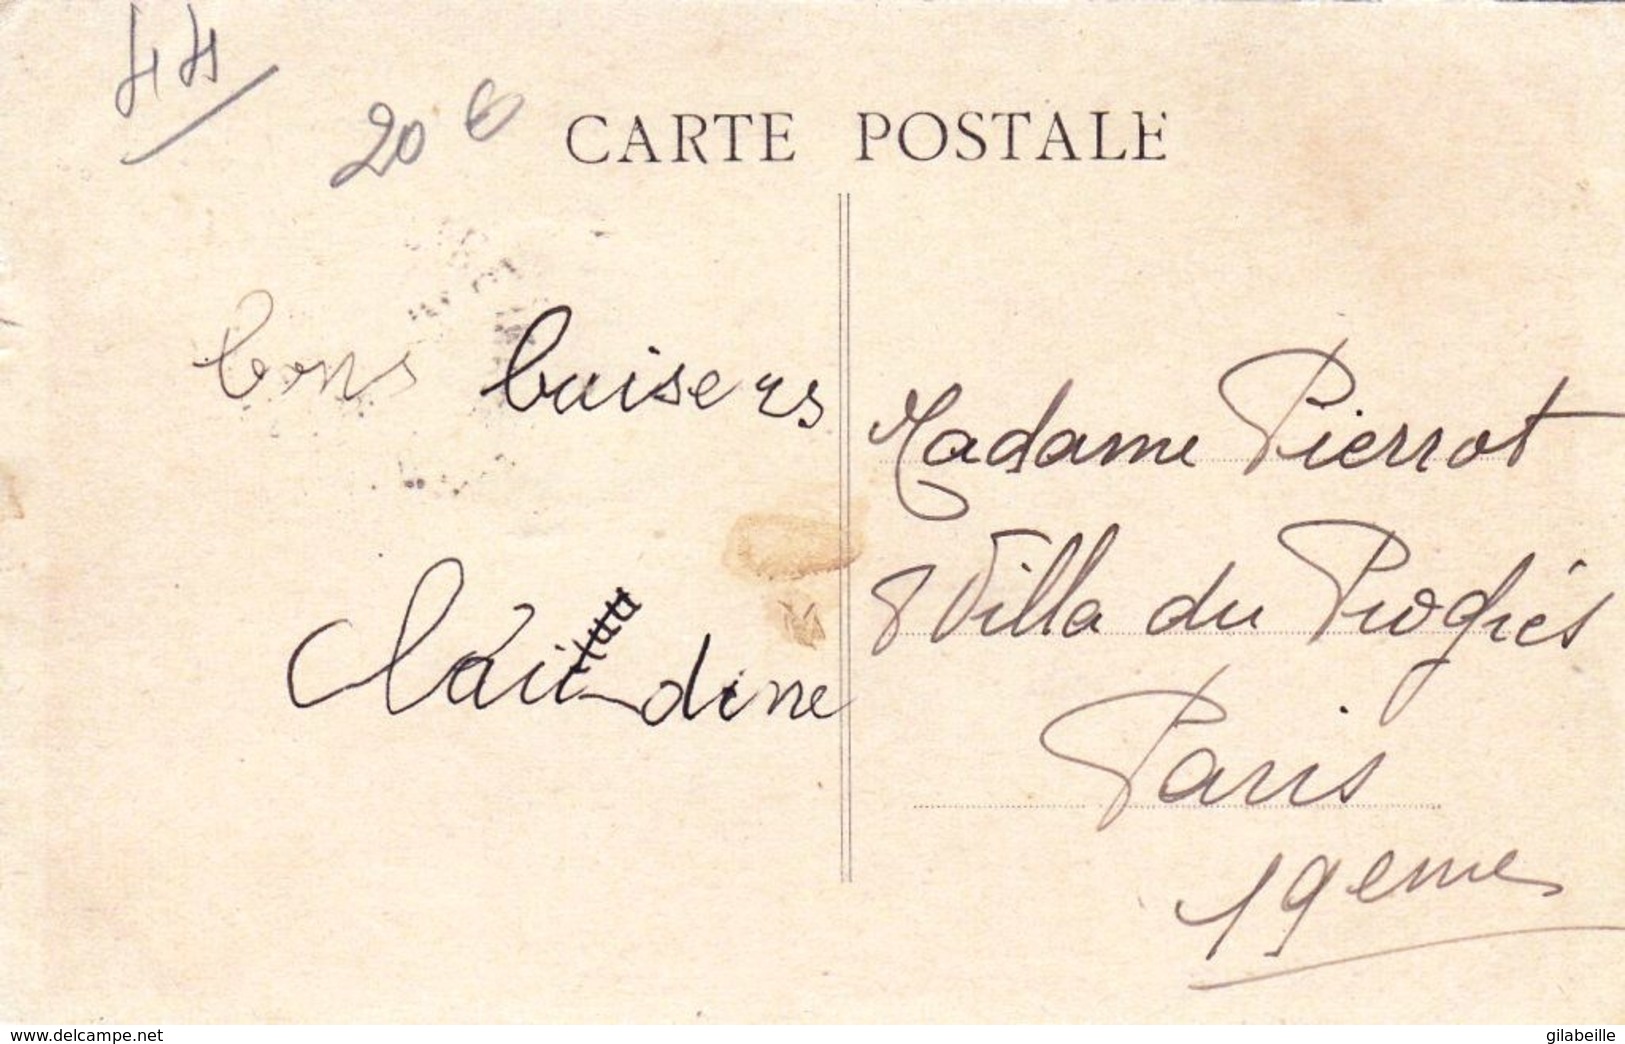 44
20 €
CARTE POSTALE
bons baisers
Claudine
Madame Pierrot
8 Villa du Progrés
Paris
19eme
delcampe.net
gilabeille